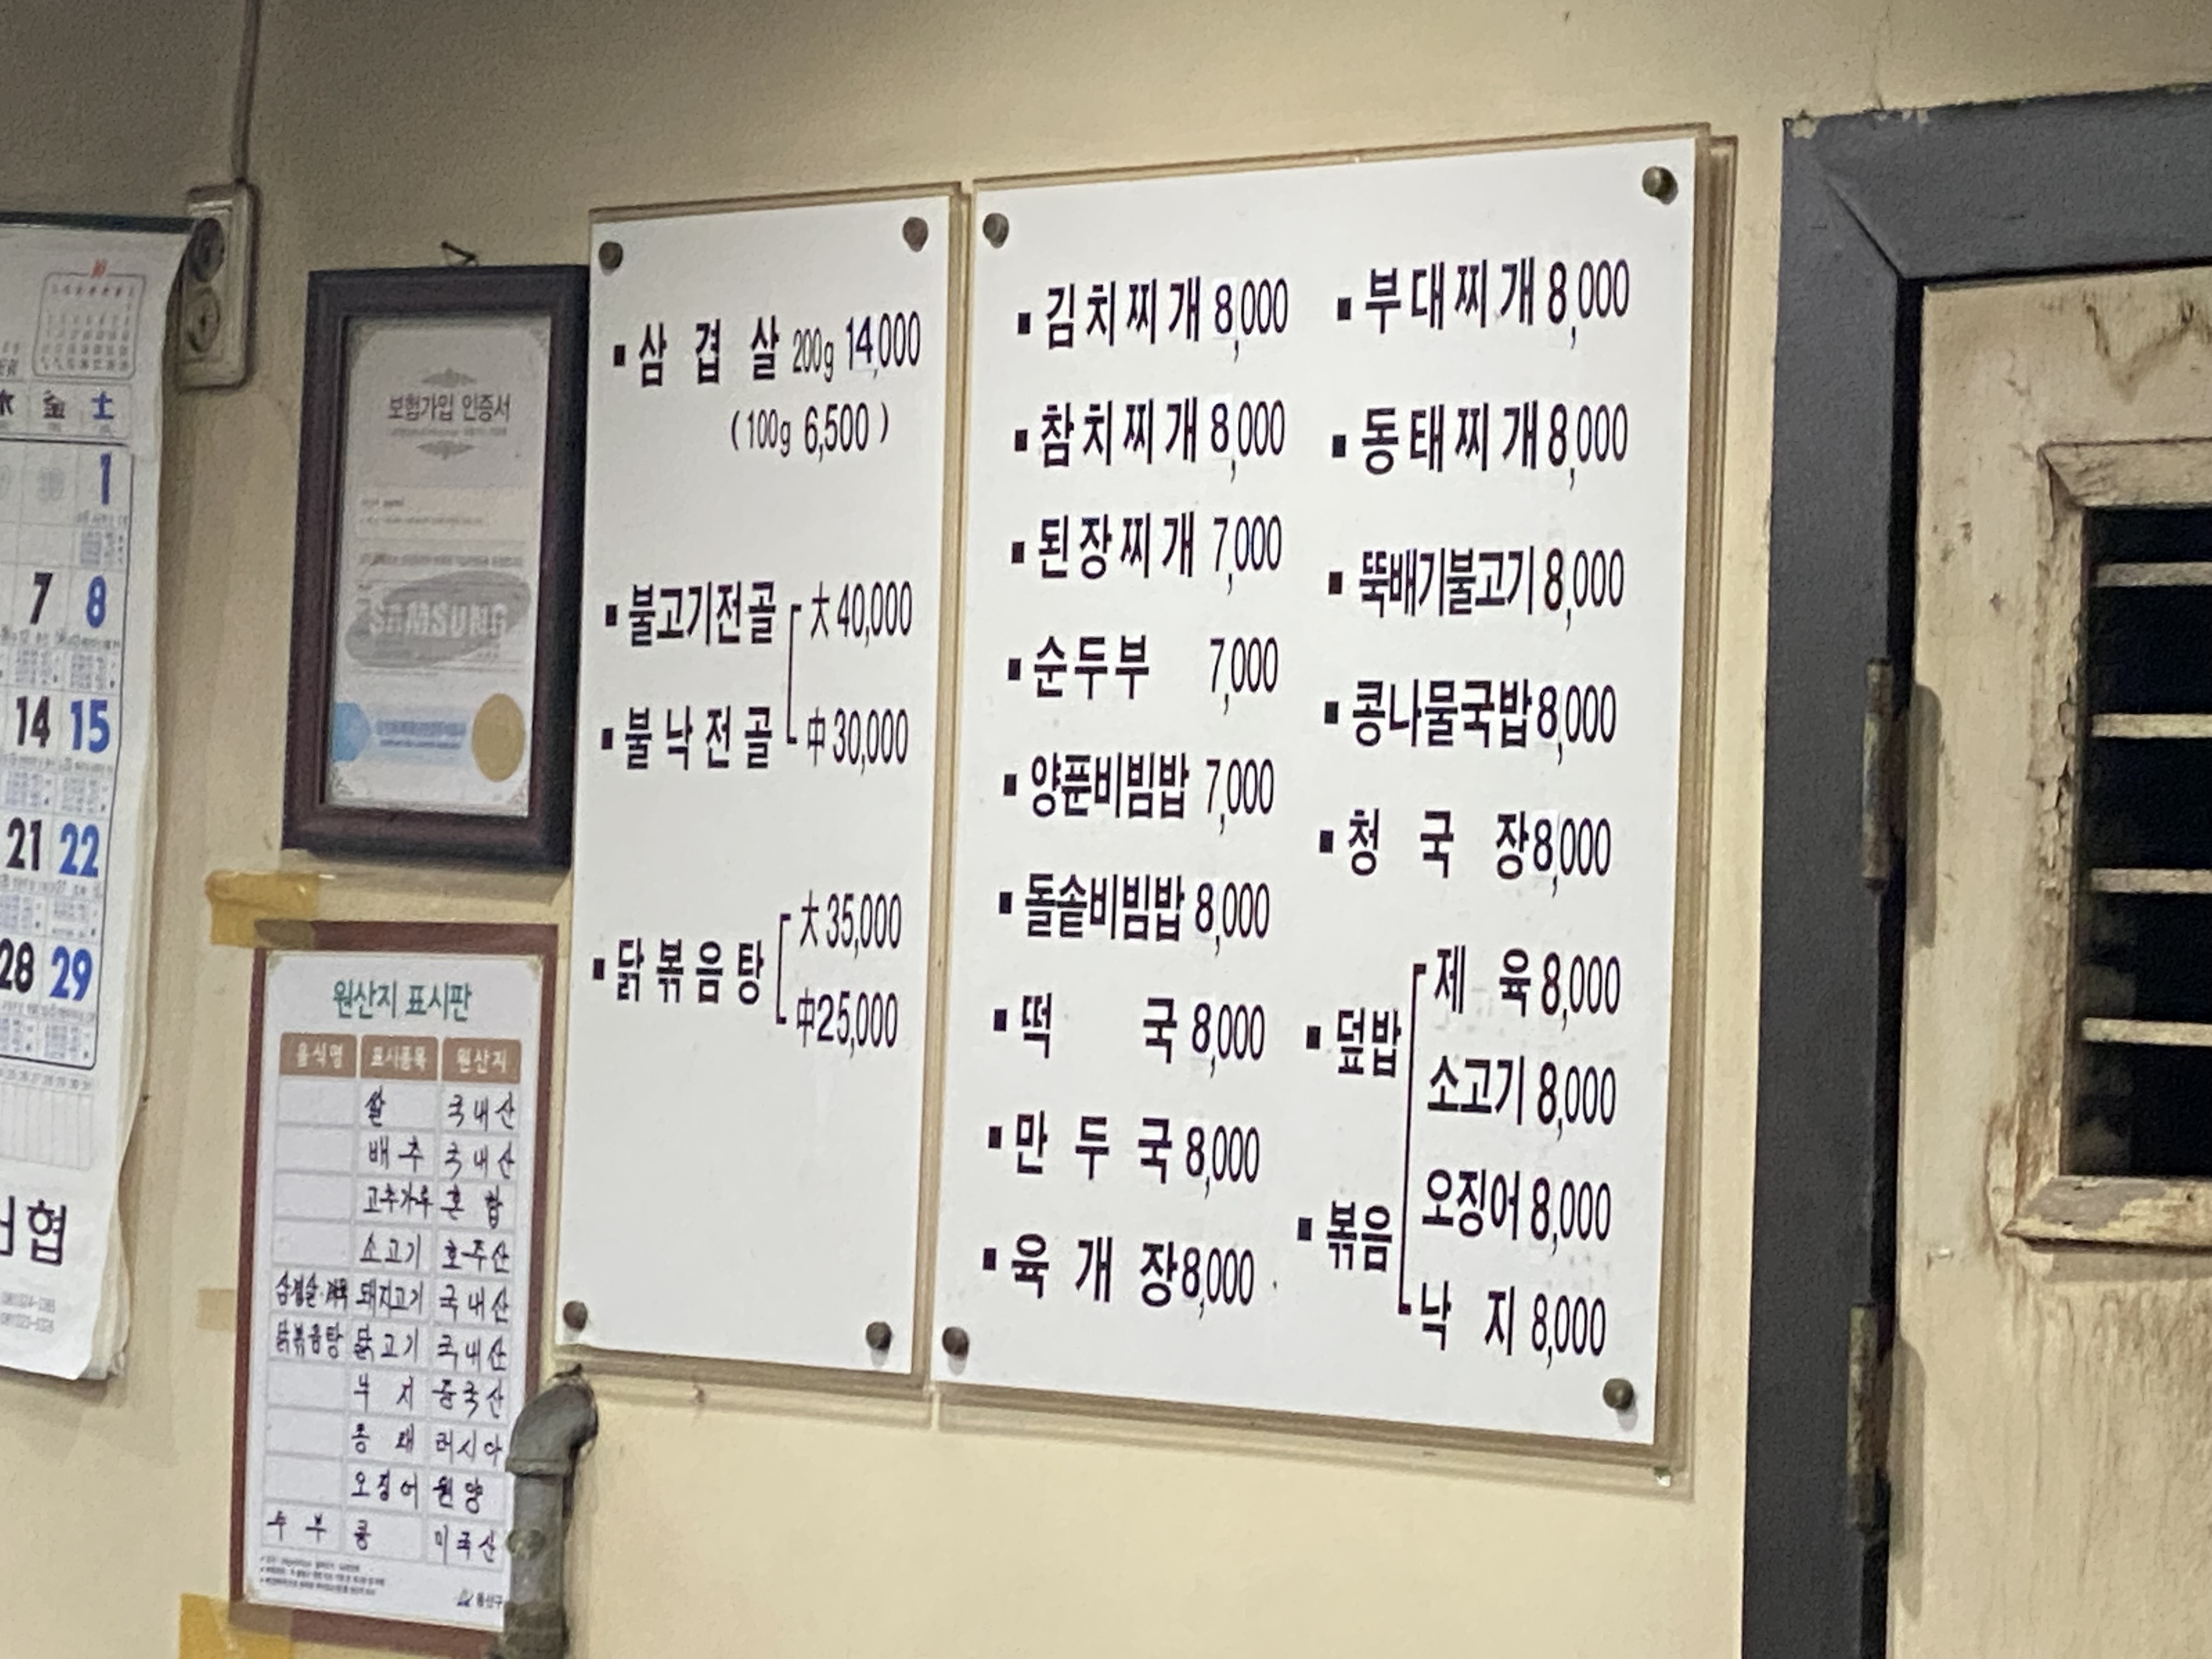 水 金 土
1
7 8
14 15
21 22
28 29
협
보험가입 인증서
SAMSUNG
원산지 표시판
음식명 표시품목 원산지
쌀 국내산
배추 국내산
고추가루 혼합
소고기 호주산
돼지고기 국내산
닭볶음탕 닭고기 국내산
중국산
동태 러시아
오징어 원양
두부 콩 미국산
용산구
▪삼겹살 200g 14,000
(100g 6,500)
▪불고기전골 大 40,000
▪불낙전골 中 30,000
大 35,000
▪닭볶음탕
中 25,000
▪김치찌개 8,000
▪참치찌개 8,000
▪된장찌개 7,000
▪순두부 7,000
▪양푼비빔밥 7,000
▪돌솥비빔밥 8,000
▪떡국 8,000
▪만두국 8,000
▪육개장 8,000
▪부대찌개 8,000
▪동태찌개 8,000
▪뚝배기불고기 8,000
▪콩나물국밥 8,000
▪청국장 8,000
제육 8,000
▪덮밥
소고기 8,000
오징어 8,000
▪볶음
낙지 8,000